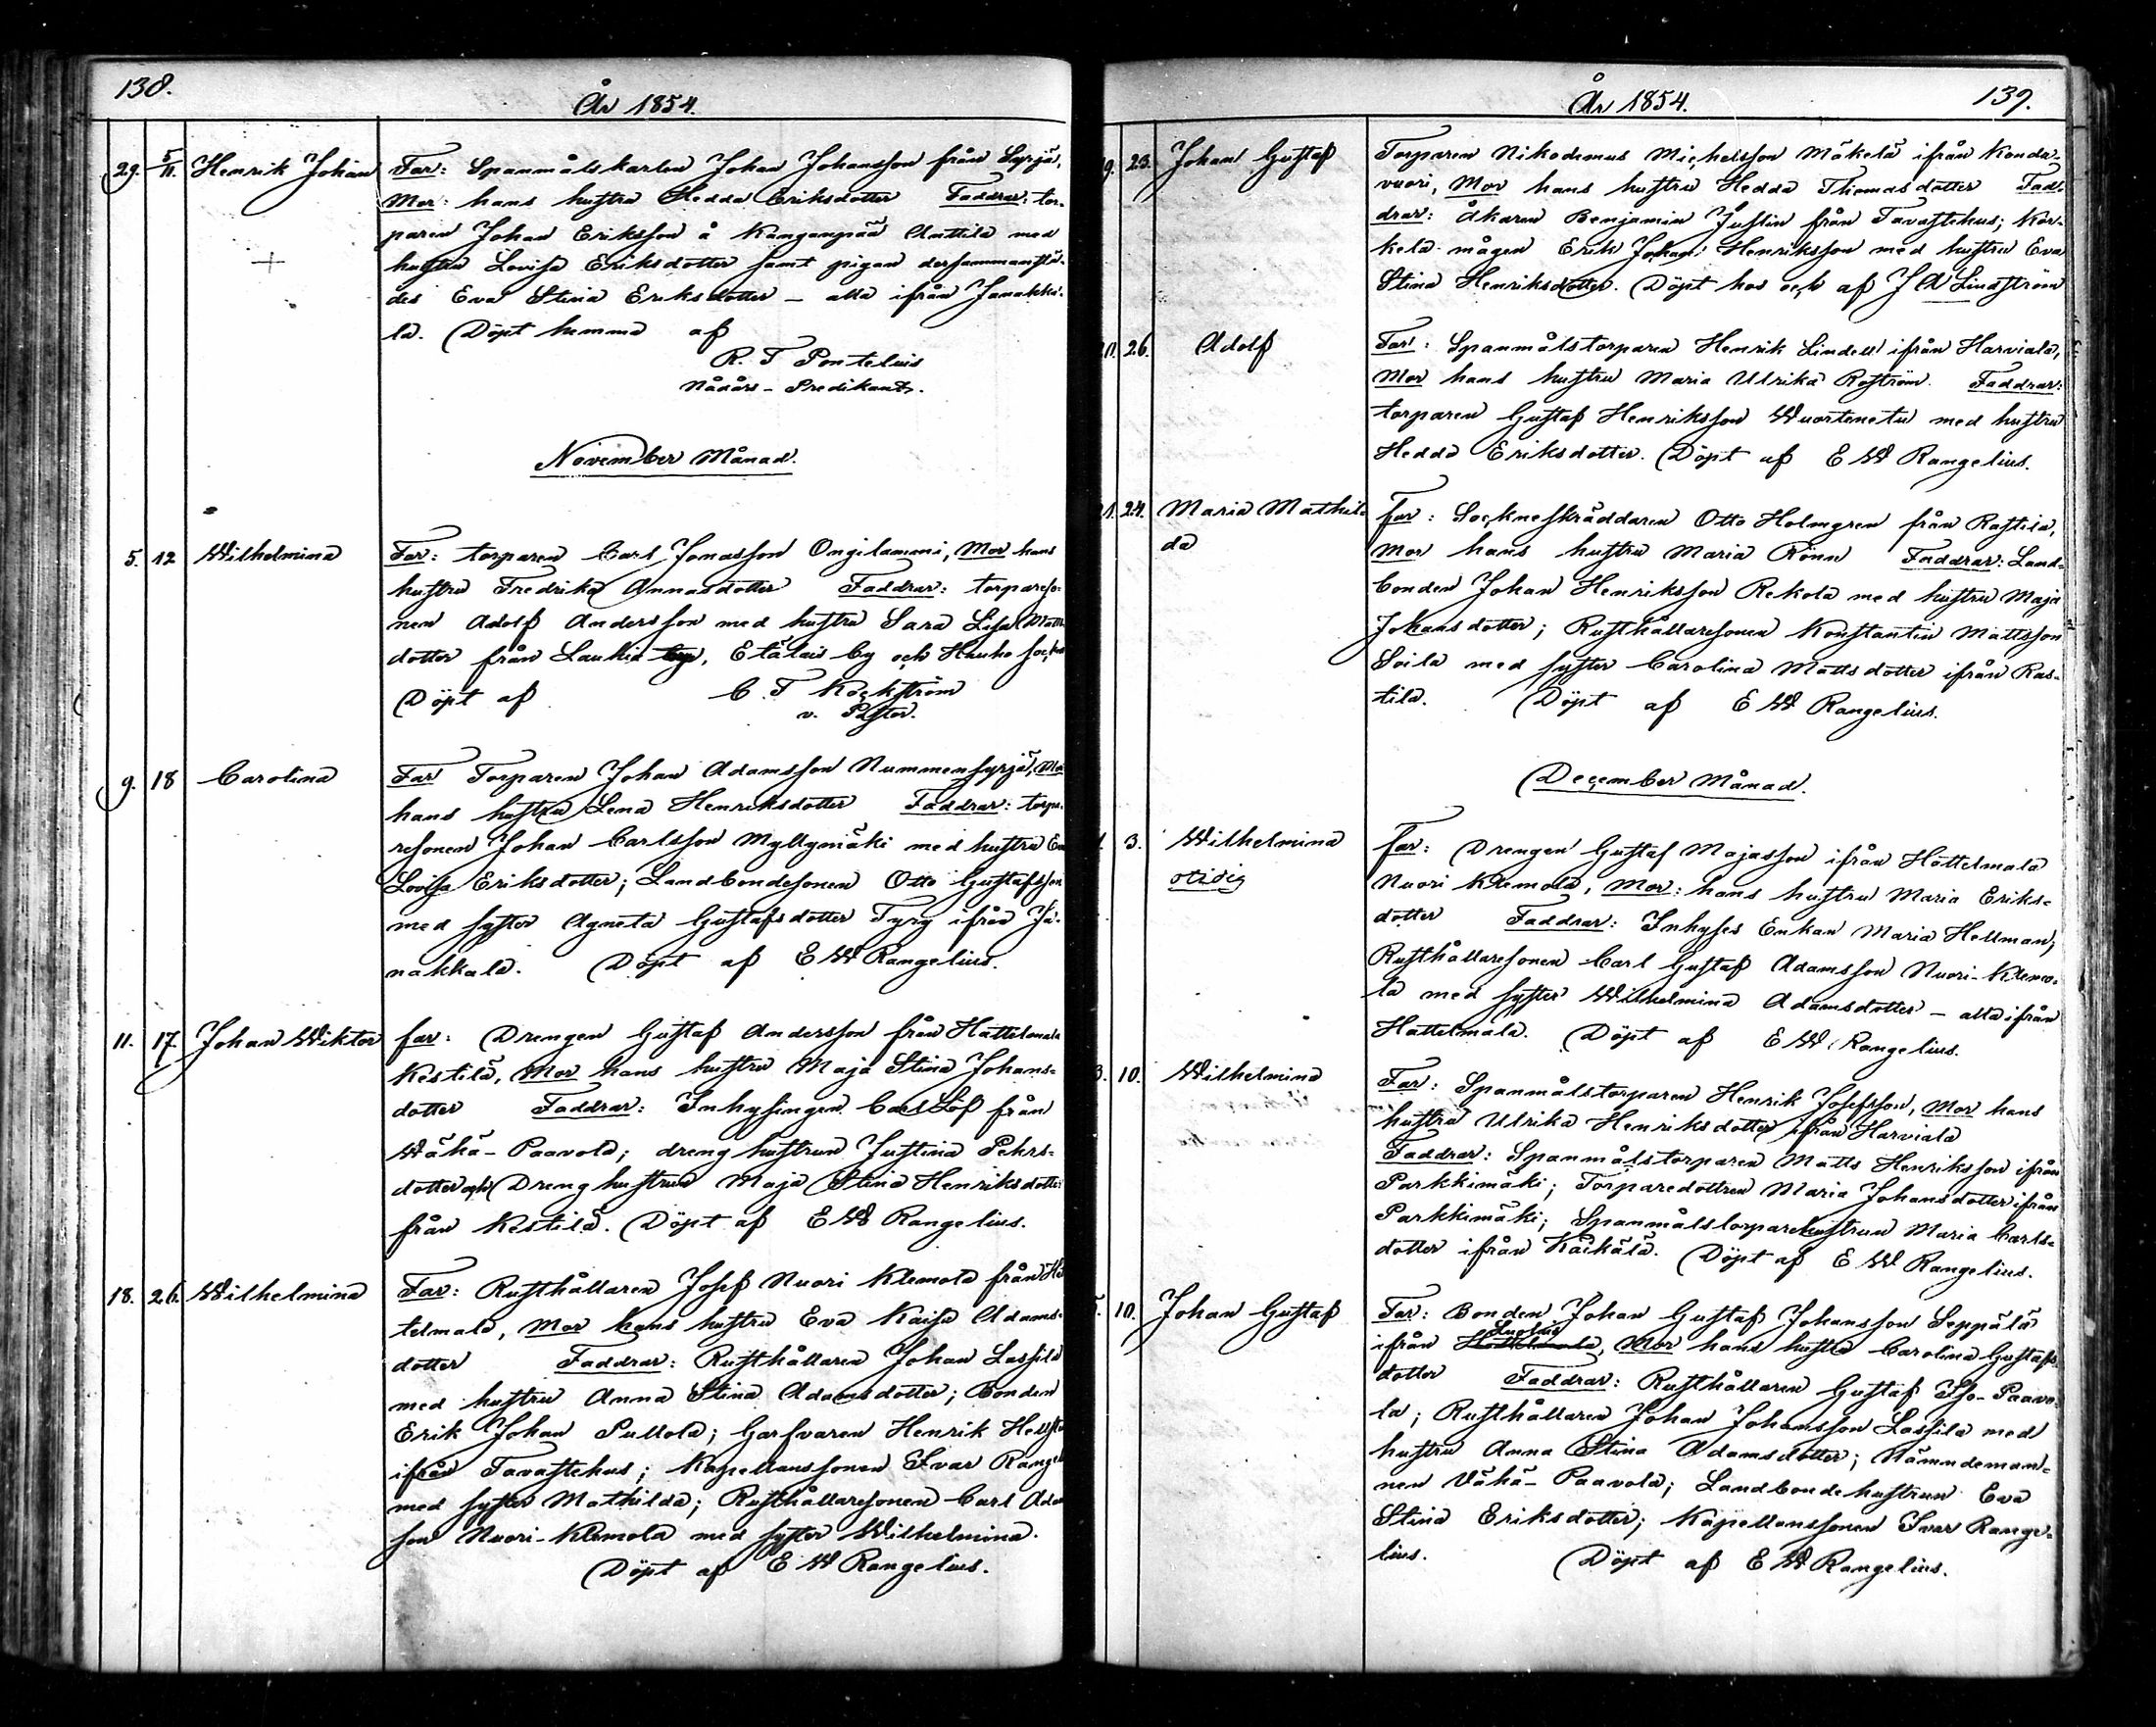 138.
År 1854.
29. 5/11. Henrik Johan Far: Spanmålskarlen Johan Johansson från Syrjä,
Mor: hans hustru Hedda Eriksdotter Faddrar: tor-
paren Johan Eriksson å Kanganpää Anttila med
hustru Lovisa Eriksdotter samt pigan dersammanstä-
des Eva Stina Eriksdotter - alla ifrån Janakka-
la. Döpt hemma af
R. T Pontelius
Nådårs-Predikant.
November Månad.
5. 12 Wilhelmina Far: torparen Carl Jonasson Ongilammi, Mor hans
hustru Fredrika Annasdotter Faddrar: torpareso-
nen Adolf Andersson med hustru Sara Lisa Matts
dotter från Laukia by, Etälais by och Hauho
Döpt af C. T Köckström
v. Pastor.
9. 18 Carolina Far Torparen Johan Adamsson Nummensyrjä, Mor
hans hustru Lena Henriksdotter Faddrar: torpa-
resonen Johan Carlsson Myllymäki med hustru
Lovisa Eriksdotter; Landbondesonen Otto Gustafsson
med syster Agneta Gustafsdotter Tyry ifrån Ja-
nakkala. Döpt af E W Rangelius.
11. 17. Johan Wiktor far: Drengen Gustaf Andersson från Hattelmala
Kestilä, Mor hans hustru Maja Stina Johans-
dotter Faddrar: Inhysingen Carl Löf från
Wähä-Paavola; dreng hustrun Justina Pehrs-
dotter och Dreng hustrun Maja Stina Henriksdotter
från Kestilä. Döpt af E W Rangelius.
18. 26. Wilhelmina Far: Rusthållaren Josef Nuori Klemola från Hat
telmala, Mor hans hustru Eva Kaisa Adams-
dotter Faddrar: Rusthållaren Johan Lassila
med hustru Anna Stina Adamsdotter; Bonden
Erik Johan Pullola; Garfvaren Henrik
ifrån Tavastehus; Kapellanssonen Ivar
med syster Mathilda; Rusthållaresonen Carl
son Nuori-Klemola med syster Wilhelmina.
Döpt af E W Rangelius.
År 1854. 139.
23. Johan Gustaf Torparen Nikodemus Michelsson Mäkelä ifrån Konda-
vuori, Mor hans hustru Hedda Thomasdotter Fad-
drar: åkaren Benjamin Juslin från Tavastehus; Kor-
kela mågen Erik Johan Henriksson med hustru Eva
Stina Henriksdotter. Döpt hos och af J A Lindström
26. Adolf Far: Spanmålstorparen Henrik Lindell ifrån Harviala,
Mor hans hustru Maria Ulrika Roström. Faddrar:
torparen Gustaf Henriksson Wuortenetu med hustru
Hedda Eriksdotter. Döpt af E W Rangelius.
24. Maria Mathil- far: Sockneskräddaren Otto Holmgren från Rastila,
da Mor hans hustru Maria Rönn Faddrar: Land-
bonden Johan Henriksson Rekola med hustru Maja
Johansdotter; Rusthållaresonen Konstantin Mattsson
Soila med syster Carolina Mattsdotter ifrån Ras-
tila. Döpt af E W Rangelius.
December Månad.
3. Wilhelmina far: Drengen Gustaf Majasson ifrån Hattelmala
otidig Nuori Klemola, Mor: hans hustru Maria Eriks-
dotter Faddrar: Inhyses Enkan Maria Hellman;
Rusthållaresonen Carl Gustaf Adamsson Nuori-Klemo-
la med syster Wilhelmina Adamsdotter - alla ifrån
Hattelmala. Döpt af E W Rangelius.
3. 10. Wilhelmina Far: Spanmålstorparen Henrik Josefsson, Mor hans
hustru Ulrika Henriksdotter ifrån Harviala
Faddrar: Spanmålstorparen Matts Henriksson ifrån
Parkkimäki; Torparedottren Maria Johansdotter ifrån
Parkkimäki; Spanmålstorparehustrun Maria Carls-
dotter ifrån Kaikälä. Döpt af E W Rangelius.
5. 10. Johan Gustaf Far: Bonden Johan Gustaf Johansson Seppälä
ifrån Hattelmala, Mor hans hustru Carolina Gustafs-
dotter Faddrar: Rusthållaren Gustaf Iso-Paavo-
la; Rusthållaren Johan Johansson Lassila med
hustru Anna Stina Adamsdotter; Nämndeman-
nen Vähä-Paavola; Landbondehustrun Eva
Stina Eriksdotter; Kapellanssonen Ivar Range-
lius. Döpt af E W Rangelius.